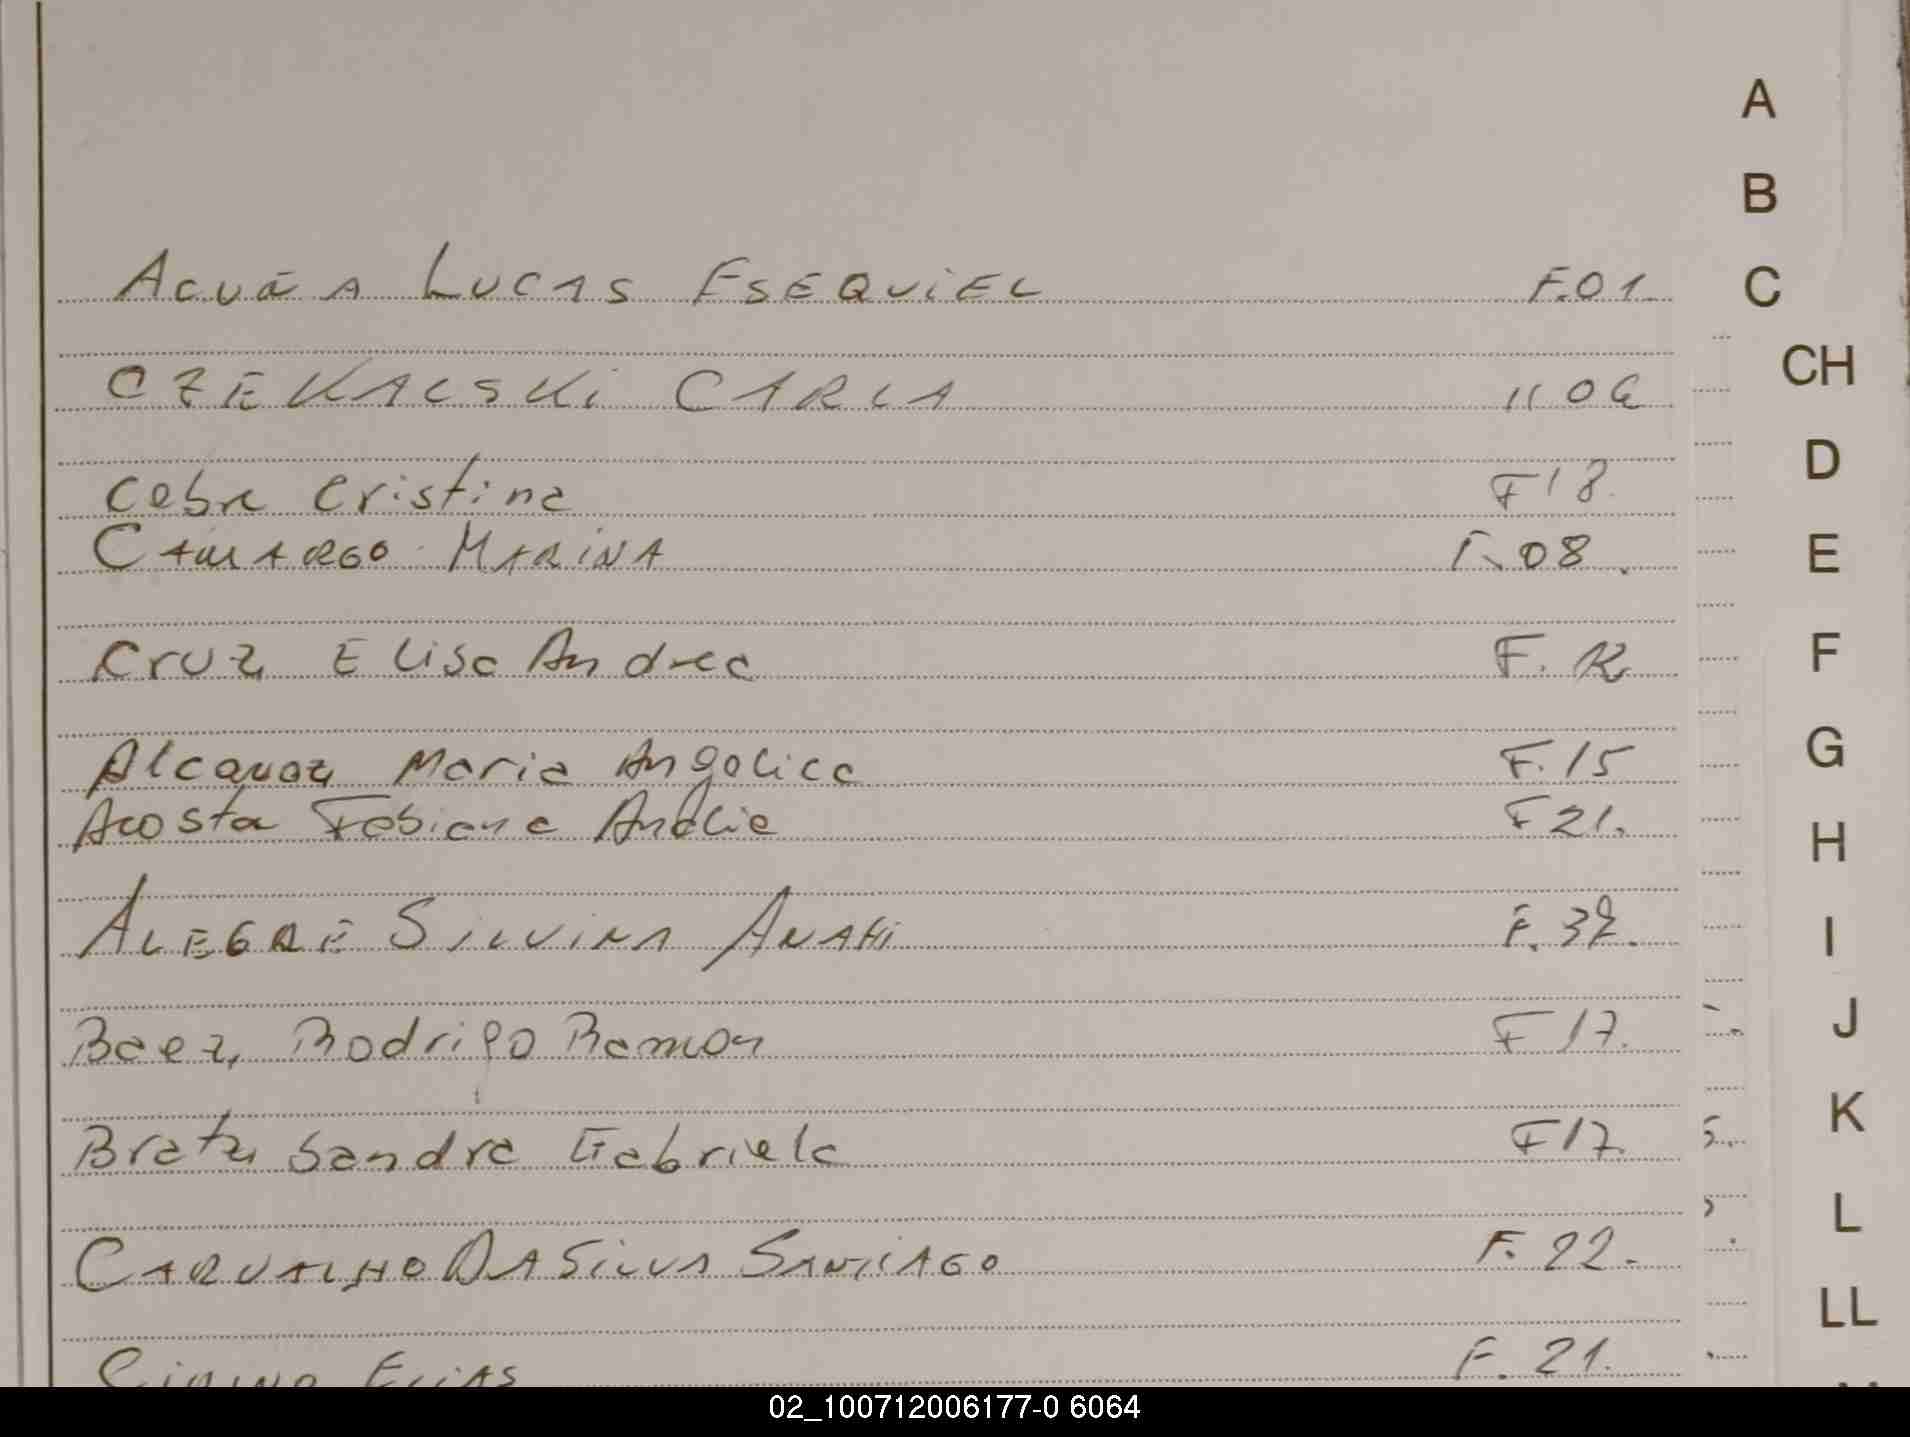 A
B
ACUÑA LUCAS ESEQUIEL F.01.
C
CH
CZEKALSKI CARLA " 06
D
Cabra Cristina F18.
CAMARGO MARINA F. 08.
E
Cruz Elisa Andrea F. 12
F
Alcaraz Maria Angelica F.15
G
Acosta Fabiana Analia F21.
H
ALEGRE SILVINA ANAHI F.37.
I
Baez Rodrigo Ramon F 17.
J
Bratz Sandra Gabriela F17.
K
L
CARVALHO DA SILVA SANTIAGO F. 22.
LL
ELIAS F. 21.
02_100712006177-0 6064